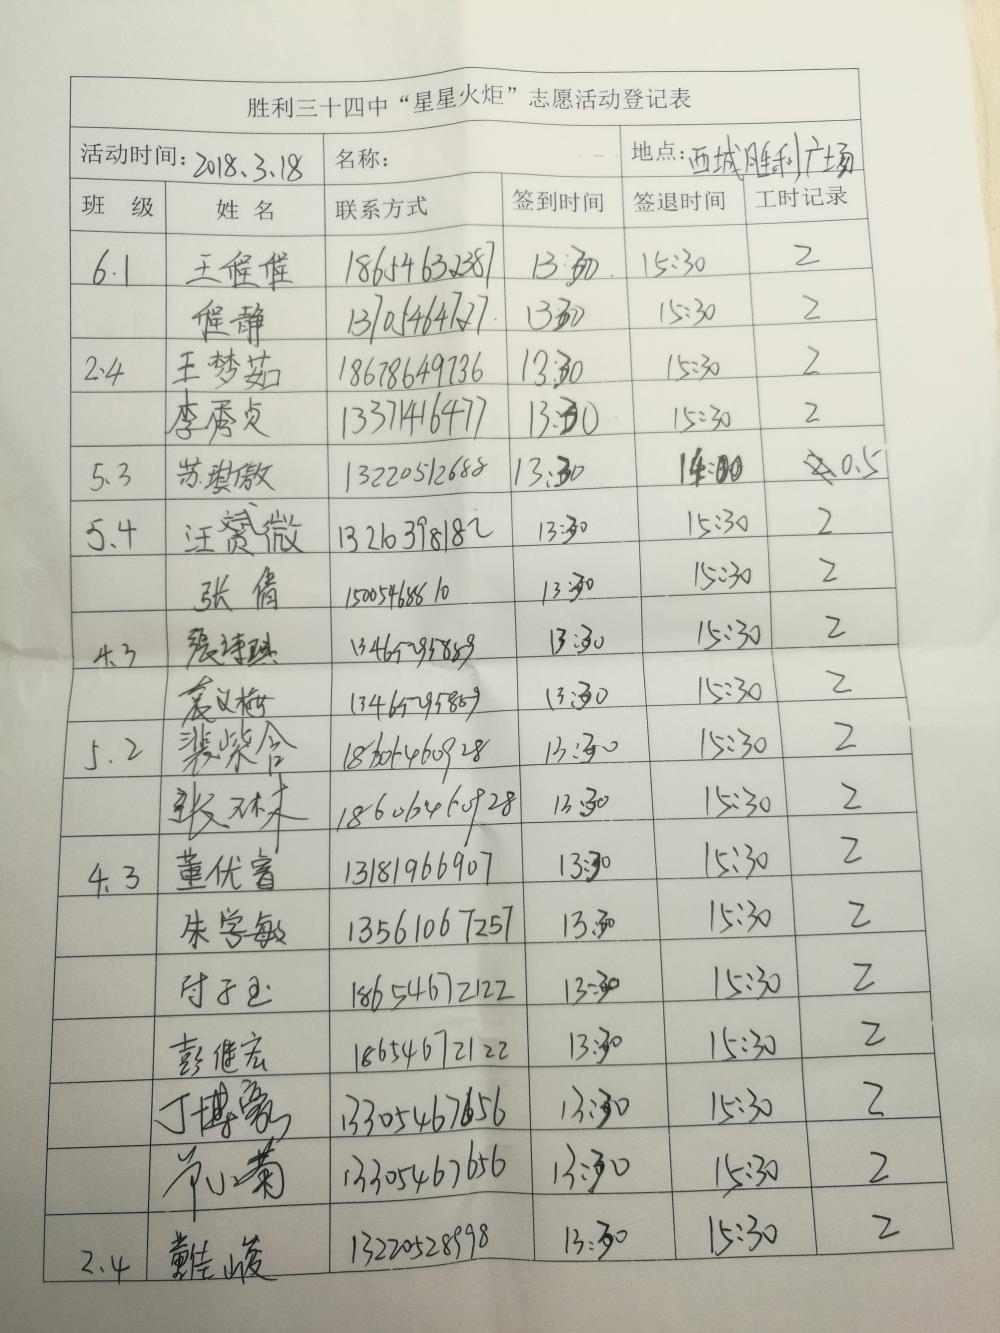 胜利三十四中“星星火炬”志愿活动登记表
活动时间: 2018.3.18 名称: 地点: 西城胜利广场
班 级 姓 名 联系方式 签到时间 签退时间 工时记录
6.1 王催催 18654632387 13:30 15:30 2
催静 13705464727 13:30 15:30 2
2.4 王梦茹 18678649736 13:30 15:30 2
李秀贞 13371416477 13:30 15:30 2
5.3 苏琪傲 13220512688 13:30 14:00 0.5
5.4 汪赟微 13210398182 13:30 15:30 2
张倩 15005468810 13:30 15:30 2
4.3 張诗琪 13465295869 13:30 15:30 2
袁义梅 13465295869 13:30 15:30 2
5.2 裴紫含 18606460928 13:30 15:30 2
张 18606460928 13:30 15:30 2
4.3 董优睿 13181966907 13:30 15:30 2
朱学敏 13561067257 13:30 15:30 2
付子玉 18654672122 13:30 15:30 2
彭继宏 18654672122 13:30 15:30 2
丁博豪 13305467656 13:30 15:30 2
小菊 13305467656 13:30 15:30 2
2.4 董佳峻 13220528998 13:30 15:30 2